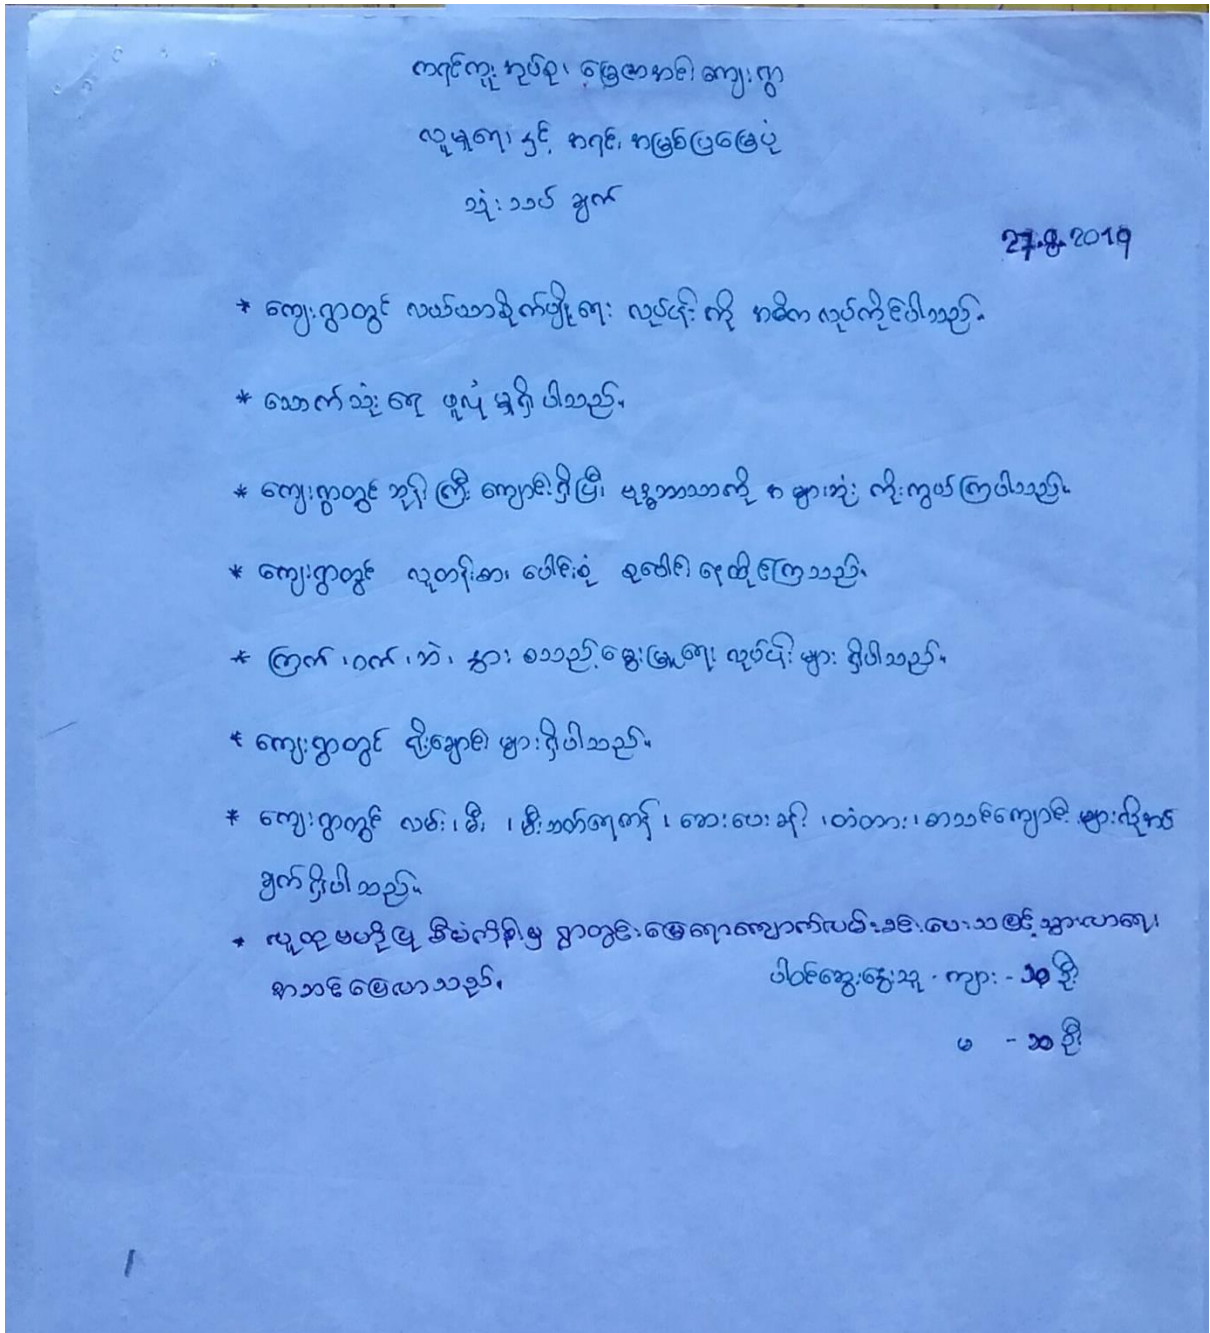 ကရင်ကူးအုပ်စု၊ မြေဇာအင်းကျေးရွာ
လူမှုရေး နှင့် အရင်းအမြစ်ပြမြေပုံ
သုံးသပ်ချက်
27.8.2019
* ကျေးရွာတွင် လယ်ယာစိုက်ပျိုးရေး လုပ်ငန်းကို အဓိက လုပ်ကိုင်ပါသည်။
* သောက်သုံးရေ ဖူလုံမှုရှိပါသည်။
* ကျေးရွာတွင် ဘုန်းကြီးကျောင်းရှိပြီး ဗုဒ္ဓဘာသာကို အများဆုံး ကိုးကွယ်ကြပါသည်။
* ကျေးရွာတွင် လူတန်းစား ပေါင်းစုံ စုပေါင်းနေထိုင်ကြသည်။
* ကြက်၊ ဝက်၊ ဘဲ၊ နွား စသည့်မွေးမြူရေး လုပ်ငန်းများ ရှိပါသည်။
* ကျေးရွာတွင် ရိုးချောင်းများရှိပါသည်။
* ကျေးရွာတွင် လမ်း၊ မီး၊ မီးသတ်ရေကန်၊ ဆေးပေးခန်း၊ တံတား၊ စာသင်ကျောင်းများလိုအပ်
ချက်ရှိပါသည်။
* လူထုဗဟိုပြု စီမံကိန်းမှ ရွာတွင်းမြေရောကျောက်လမ်းခင်းပေးသဖြင့် သွားလာရေး
အဆင်ပြေလာသည်။
ပါဝင်ဆွေးနွေးသူ - ကျား - ဦး
မ - ဦး